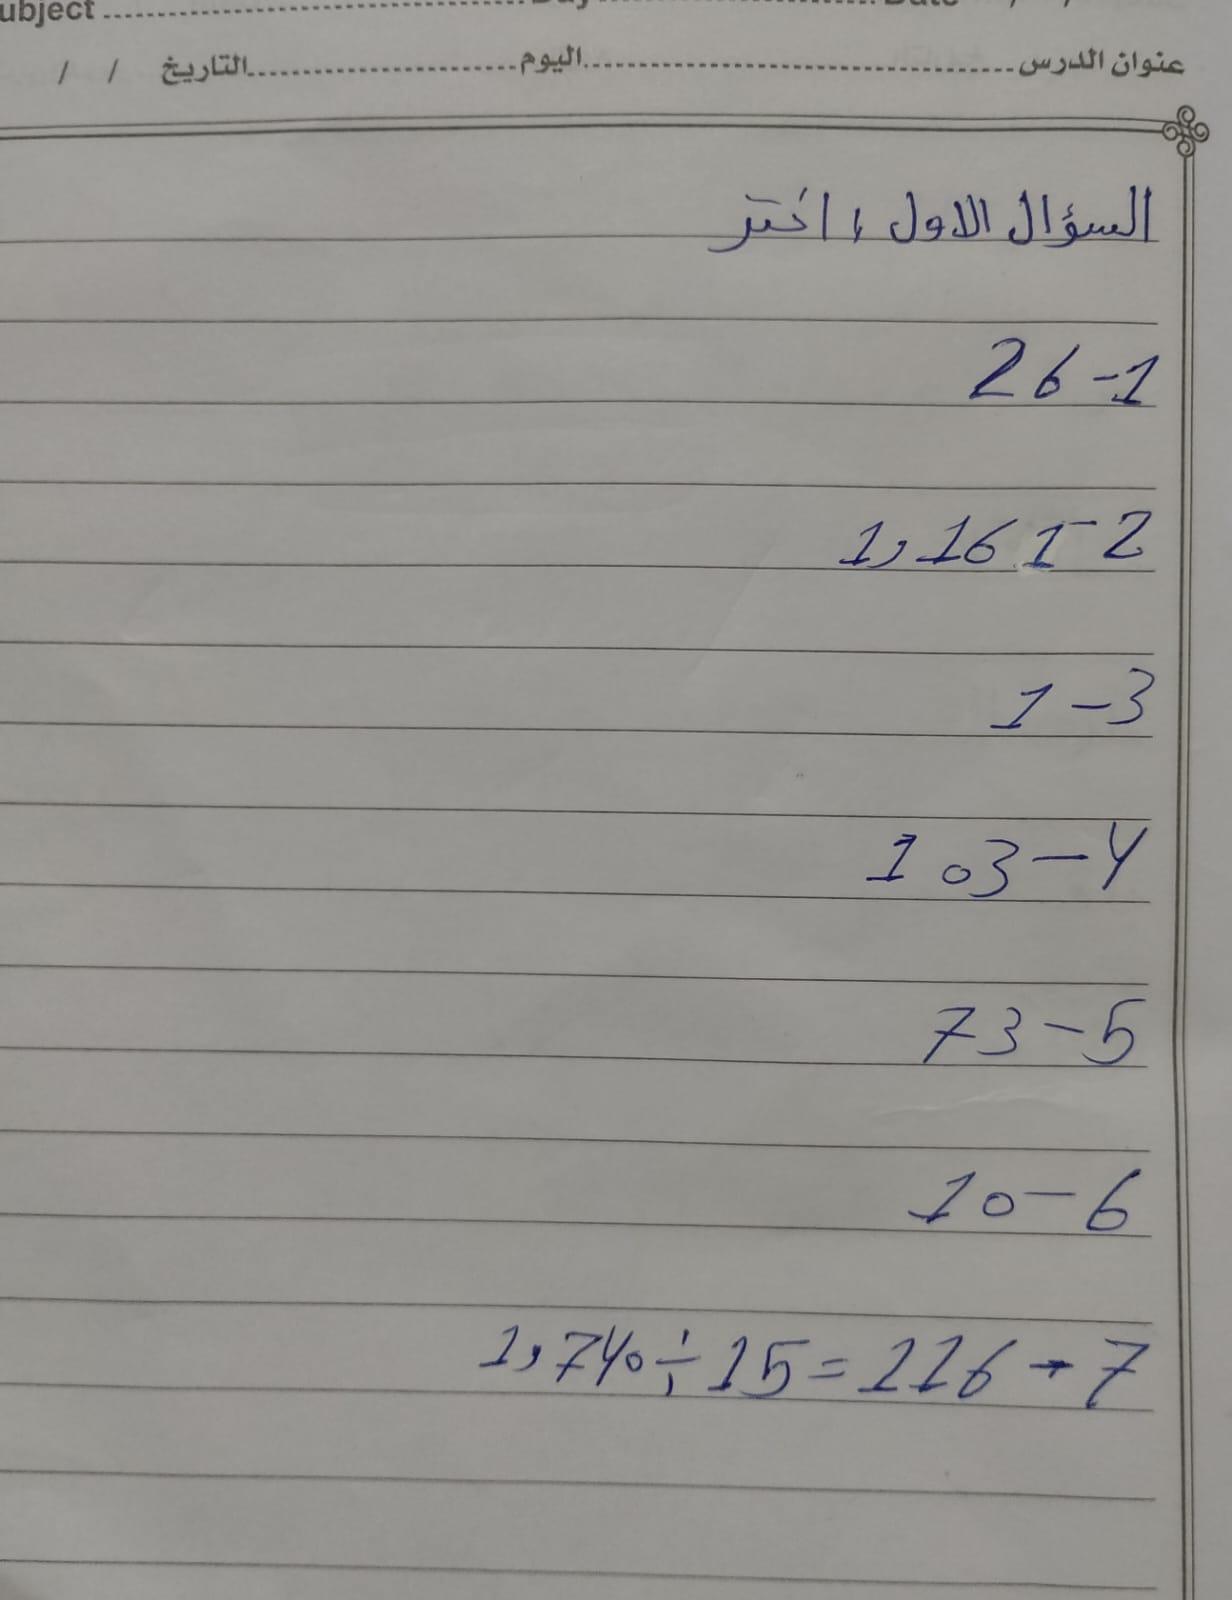 ubject ........ Day ........ Date / /
عنوان الدرس ........ اليوم ........ التاريخ / /
السؤال الاول : اختر
1- 26
2- 1,161
3- 1
4- 103
5- 73
6- 10
7- 1,740 ÷ 15 = 116